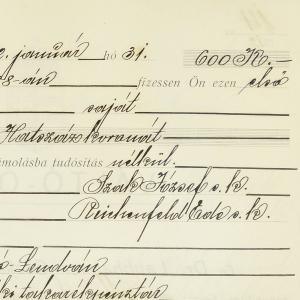 2. január hó 31. 600 K.-
8-án fizessen Ön ezen első
saját
Hatszáz koronát
ámolásba tudósítás nélkül.
Szak József s. k.
Reichenfeld Ede s. k.
ó-Lendván
ki takarékpénztár